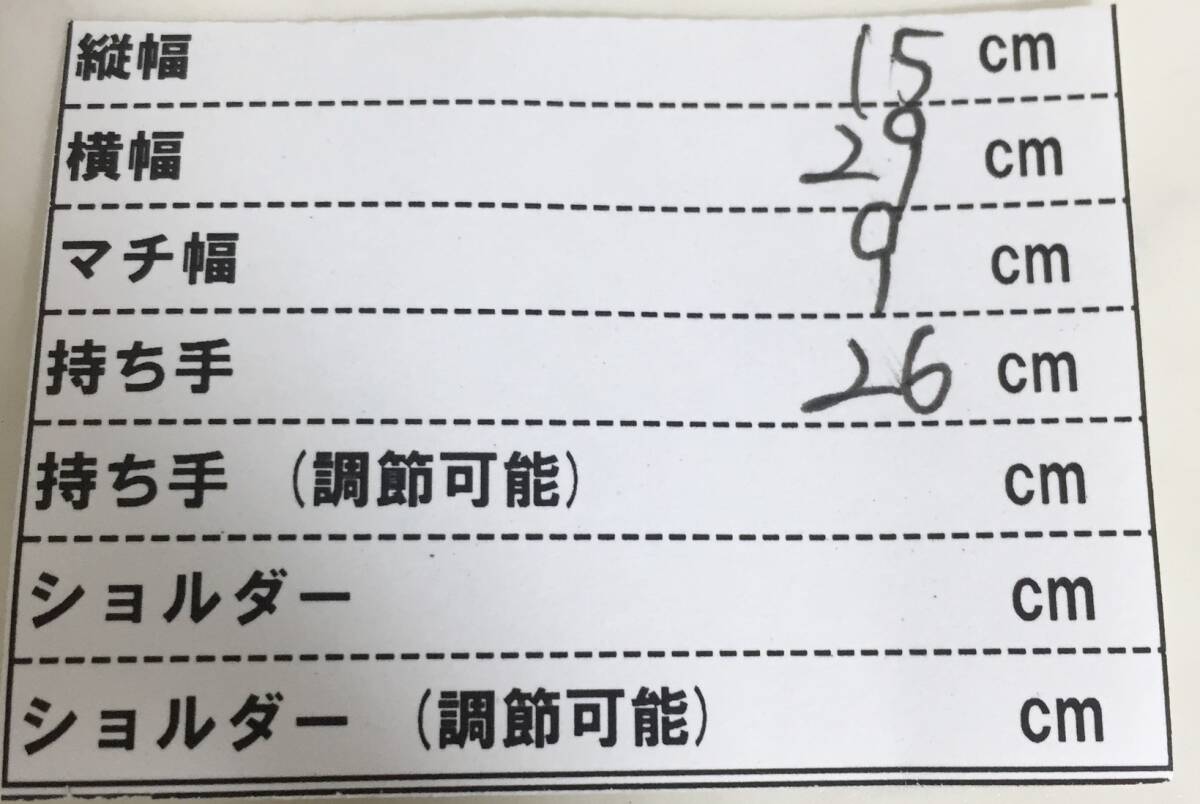 縦幅 15 cm
横幅 29 cm
マチ幅 9 cm
持ち手 26 cm
持ち手 (調節可能) cm
ショルダー cm
ショルダー (調節可能) cm